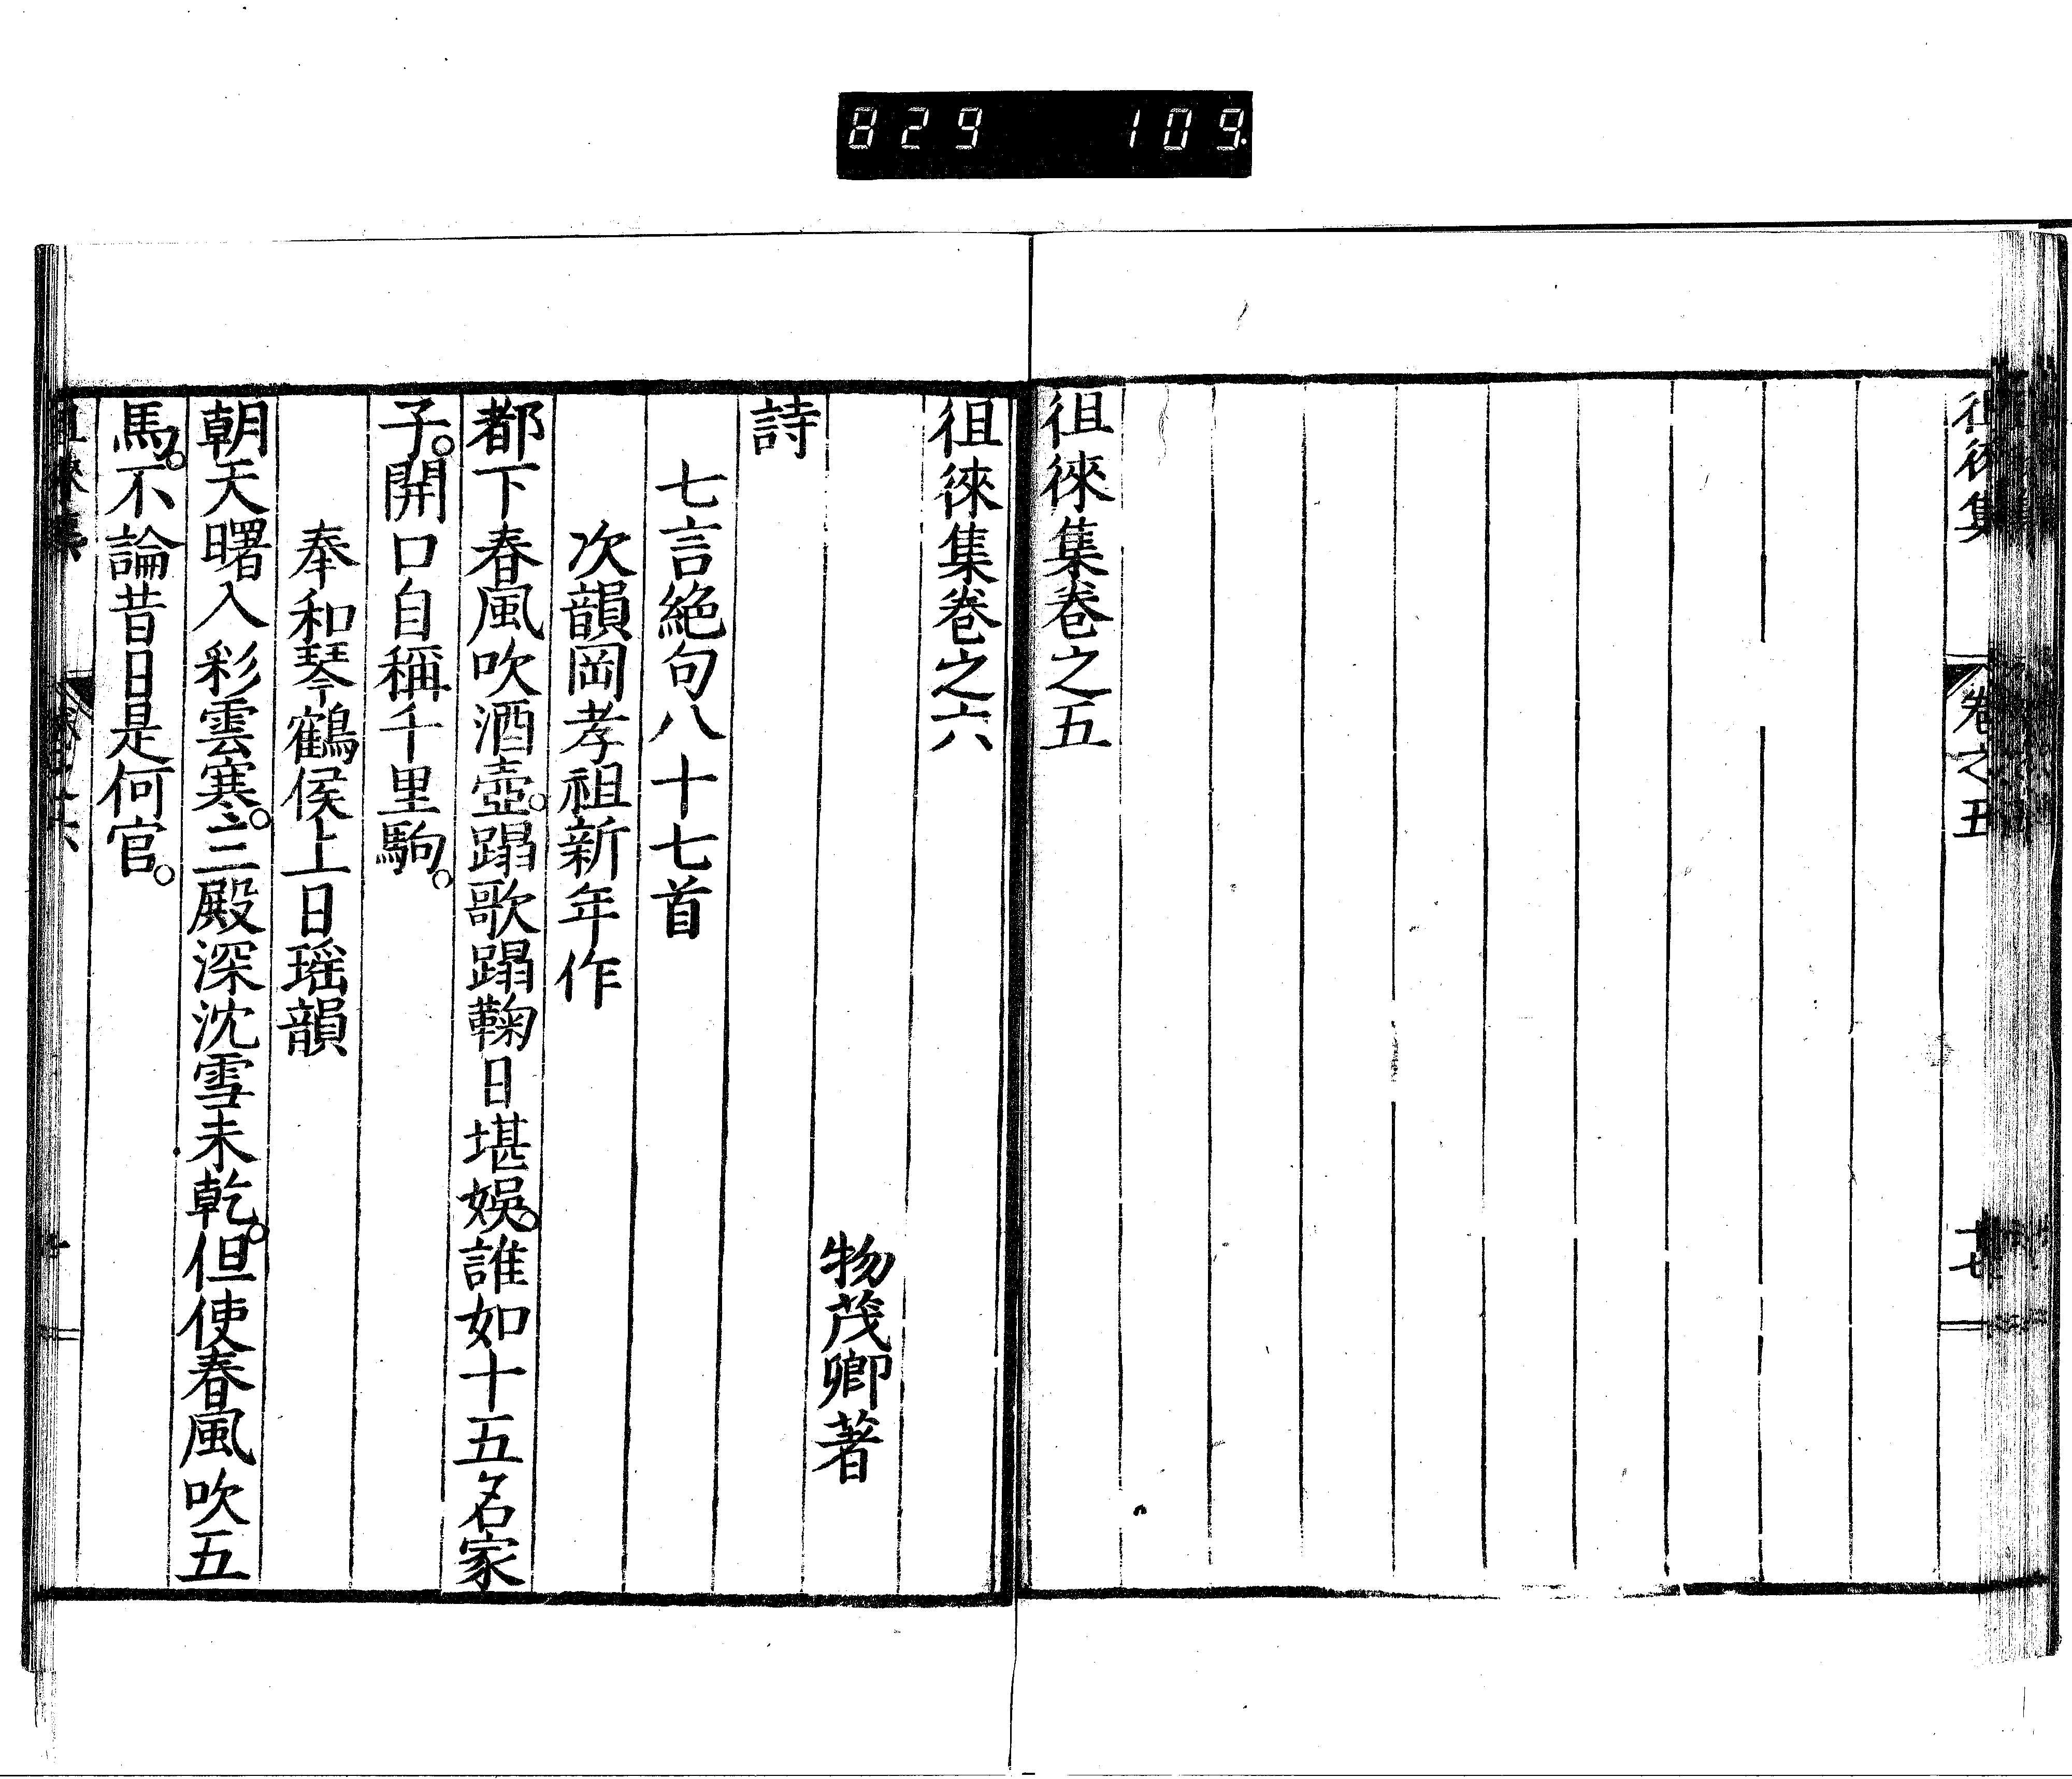 829 109
徂徠集 卷之五 十七
徂徠集卷之五
徂徠集卷之六
物茂卿著
詩
七言絶句八十七首
次韻岡孝祖新年作
都下春風吹酒壺。蹋歌蹋鞠日堪娯。誰如十五名家
子。開口自稱千里駒。
奉和琴鶴侯上日瑶韻
朝天曙入彩雲寒。三殿深沈雪未乾。但使春風吹五
馬。不論昔日是何官。